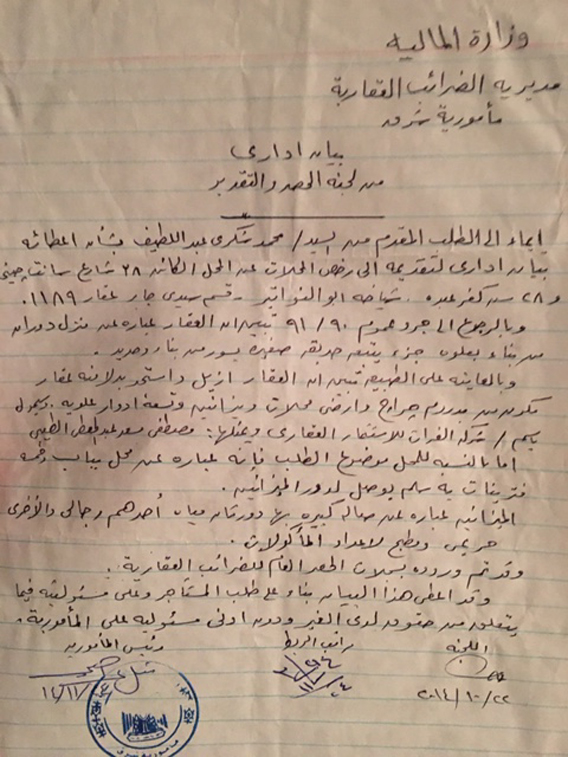 وزارة المالية
مديرية الضرائب العقارية
مأمورية شرق
بيان ادارى
من لجنة الحصر والتقدير
إيماء الى الطلب المقدم من السيد / محمد شكرى عبد اللطيف بشأن اعطائه
بيان ادارى لتقديمه الى رخص المحلات عن المحل الكائن ٢٨ شارع سانت چينى
و ٢٨ سن كفر عبده . شياخة ابو النواتير - قسم سيدى جابر عقار ١١٨٩.
وبالرجوع الى جرد عموم ٩٠ / ٩١ تبين ان العقار عباره عن منزل دوران
من بناء يعلوه جزء يتبعه حديقه صغيره بسور من بناء وحديد .
وبالمعاينه على الطبيعه تبين ان العقار ازيل واستجد بدلا منه عقار
مكون من بدروم جراج وارضى محلات وميزانين وتسعة ادوار علويه . وسجل
باسم / شركة الفرات للاستثمار العقارى وعنها : مصطفى سعد عبد المعطى الطيبى
اما بالنسبه للمحل موضوع الطلب فإنه عباره عن محل بباب وخمسه
فترينات به سلم يوصل لدور الميزانين .
الميزانين عباره عن صاله كبيره بها دورتان مياه أحدهم رجالى والأخرى
حريمى ومطبخ لاعداد المأكولات .
وقد تم وروده بسجلات الحصر العام للضرائب العقارية .
وقد اعطى هذا البيان بناء على طلب المستأجر وعلى مسئوليته فيما
يتعلق من حقوق لدى الغير ودون ادنى مسئوليه على المأمورية .
اللجنه مراقب الربط رئيس المأموريه
٢٠١٤/١٠/٢٢